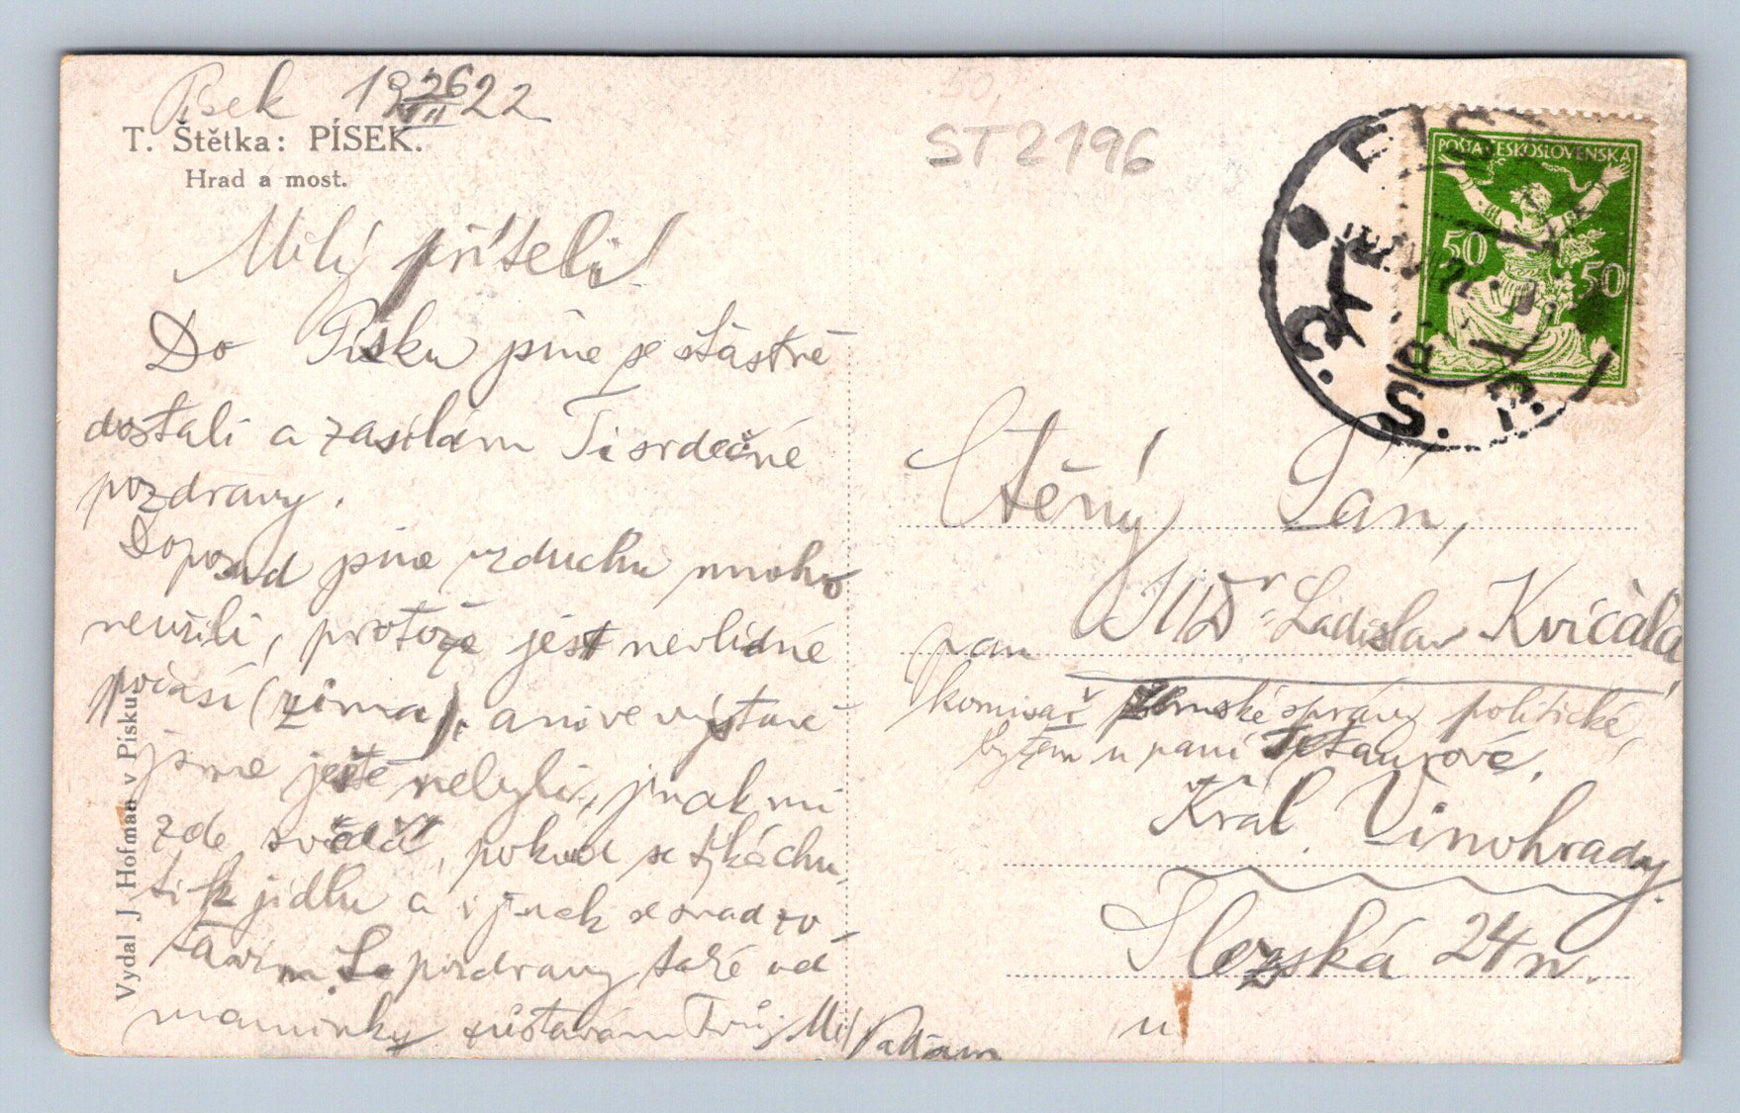 Písek 19 26/VII 22
T. Štětka: PÍSEK.
Hrad a most.
ST2196
POŠTA ČESKOSLOVENSKÁ
50 50
Milý příteli!
Do Písku jsme se šťastně
dostali a zasílám Ti srdečné
pozdravy.
Doposud jsme vzduchu mnoho
neužili, protože jest nevlídné
počasí (zima), ani ve výstavě
jsme ještě nebyli, jinak mi
zde svědčí, pokud se týká chu-
ti k jídlu a i jinak se snad zo-
tavím. S pozdravy také od
maminky zůstávám Tvůj Mil
Ctěný Pán,
pan JUDr Ladislav Kvíčala,
komisař zemské správy politické,
bytem u paní
Král. Vinohrady.
Slezská 24n.
Vydal J. Hofman v Písku.